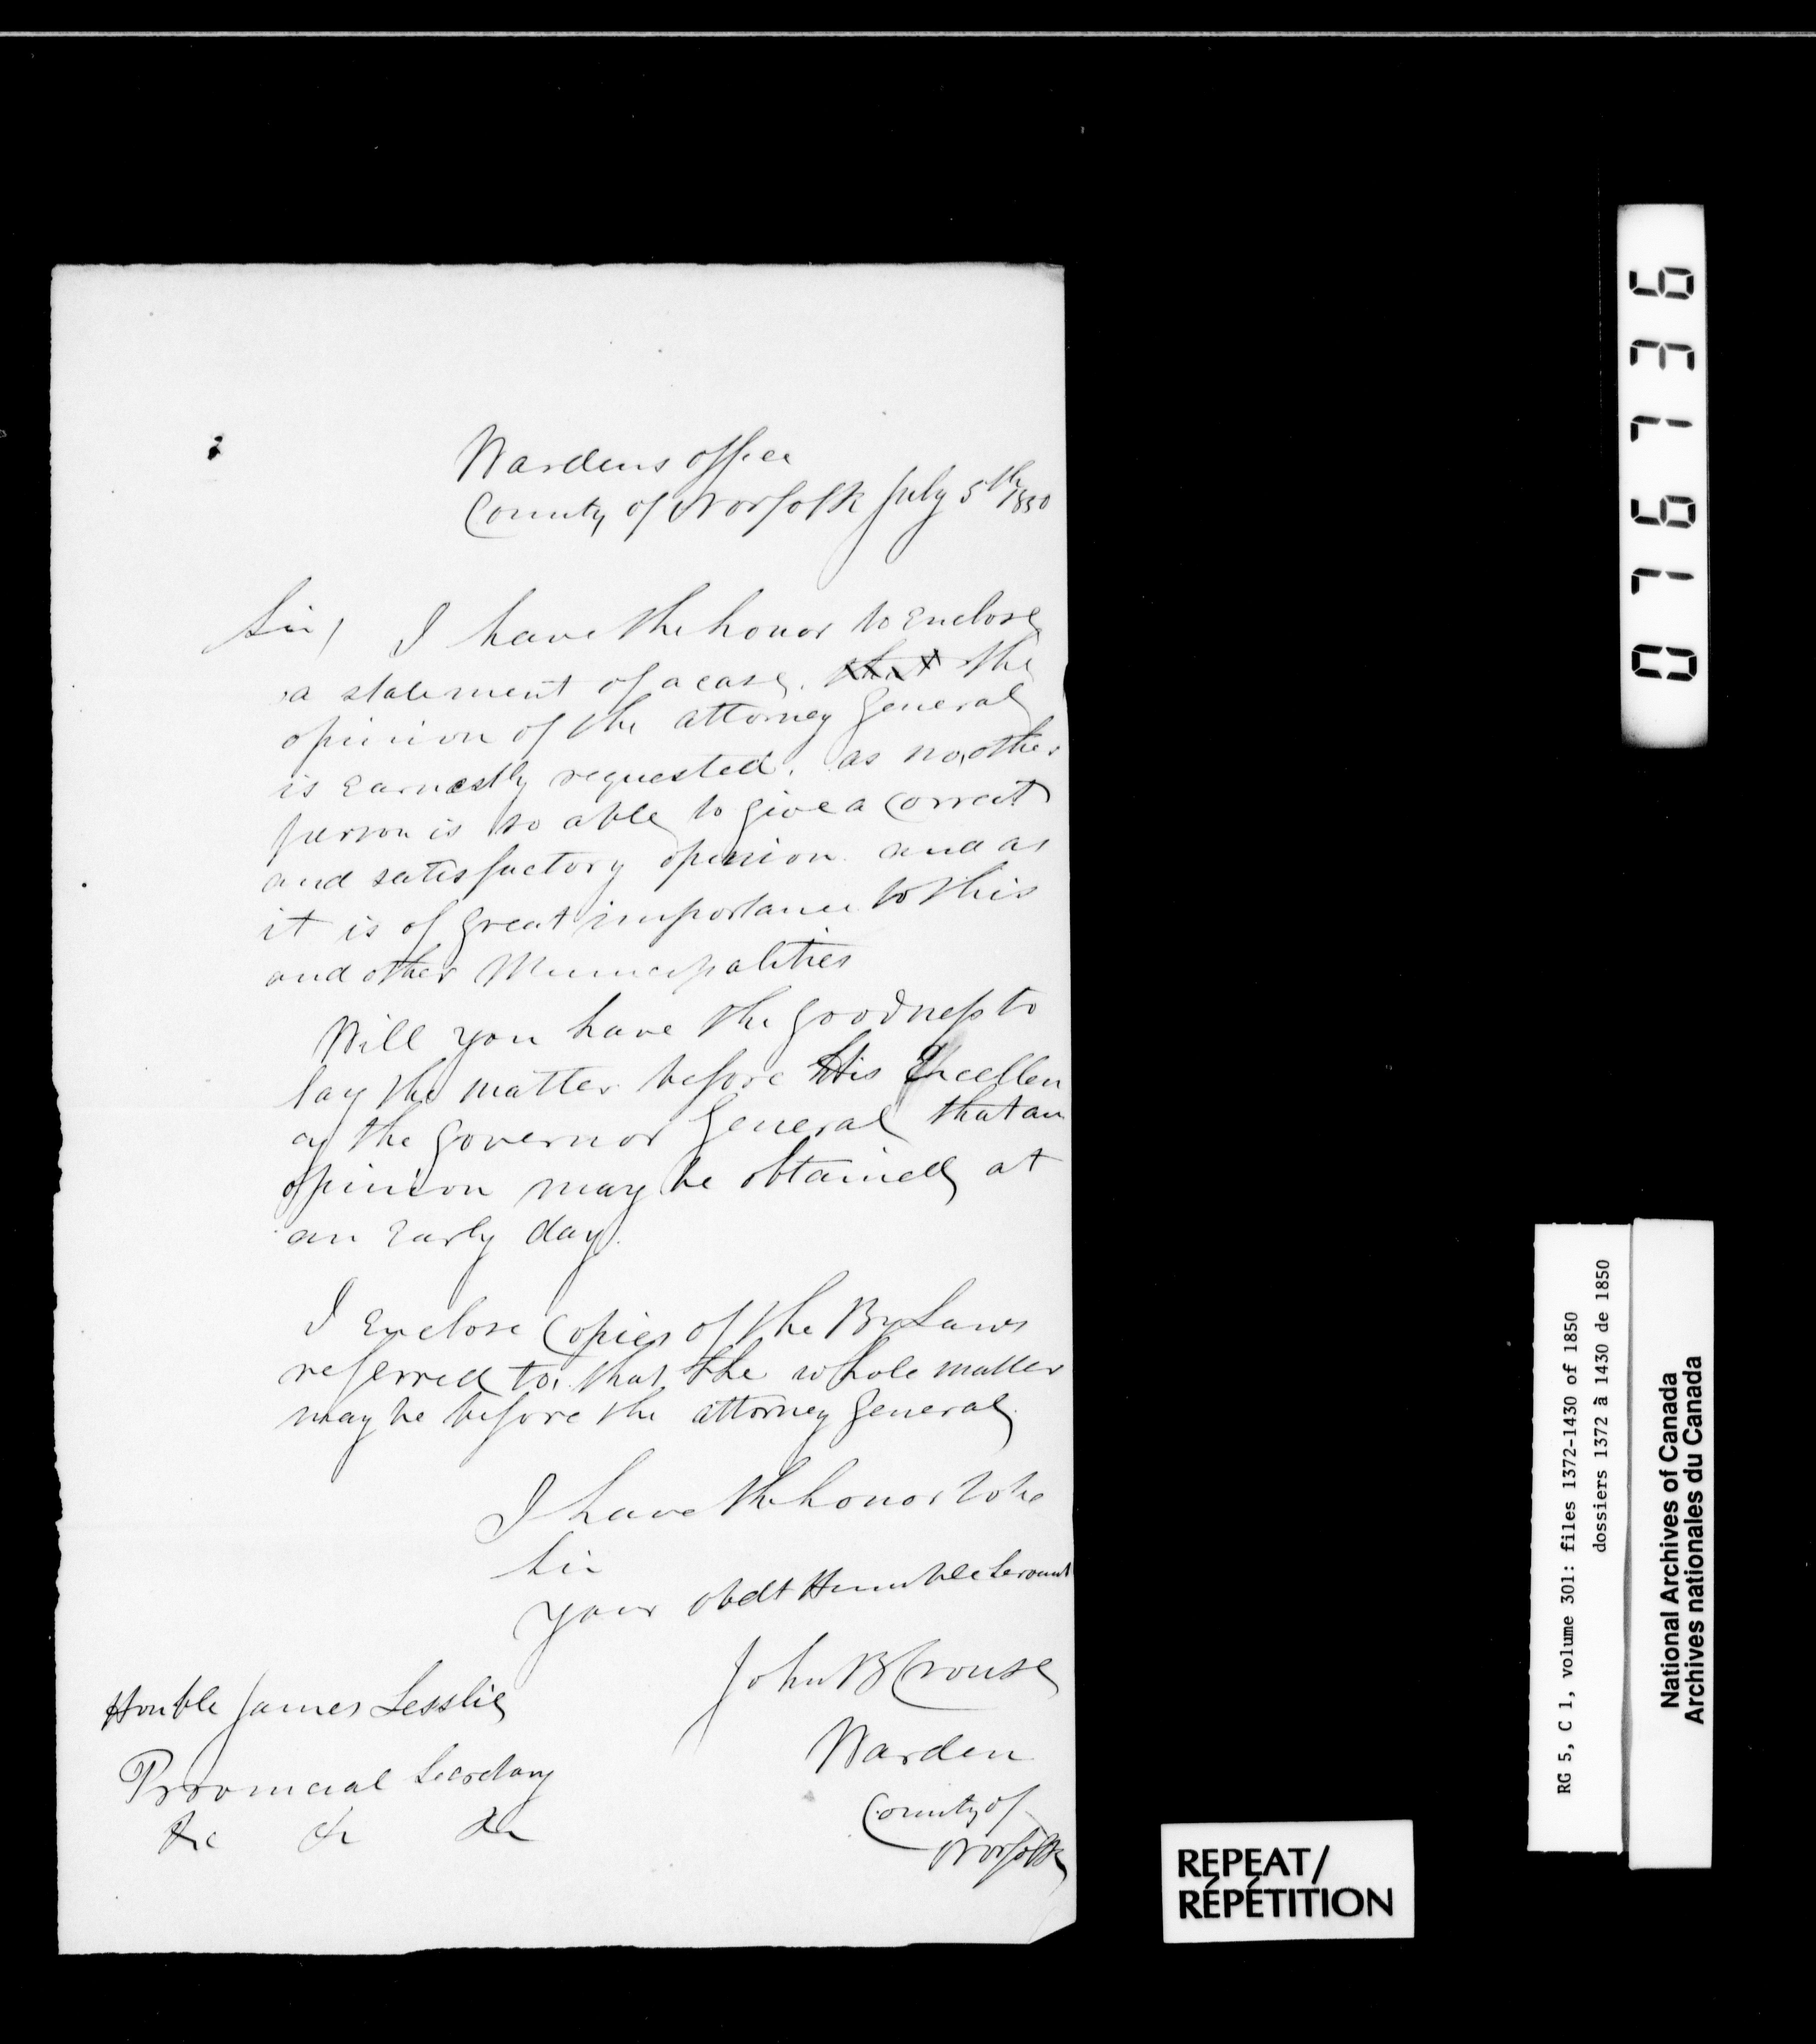 Wardens office
County of Norfolk July 5th 1850
Sir, I have the honor to Enclose
a statement of a case. that the
opinion of the attorney General
is Earnestly requested. as no other
person is so able to give a Correct
and satisfactory opinion and as
it is of great importance to this
and other Municipalities
Will you have the goodness to
lay the matter before His Excellen
cy the Governor General that an
opinion may be obtained at
an Early day.
I Enclose Copies of the By Laws
referred to, that the whole matter
may be before the attorney General.
I have the honor to be
Sir
your obdt Humble Servant
John B Crouse
Warden
County of
Norfolk
Honble James Lesslie
Provincial Secretary
&c &c &c
076736
RG 5, C 1, volume 301: files 1372-1430 of 1850
dossiers 1372 à 1430 de 1850
National Archives of Canada
Archives nationales du Canada
REPEAT/
RÉPÉTITION